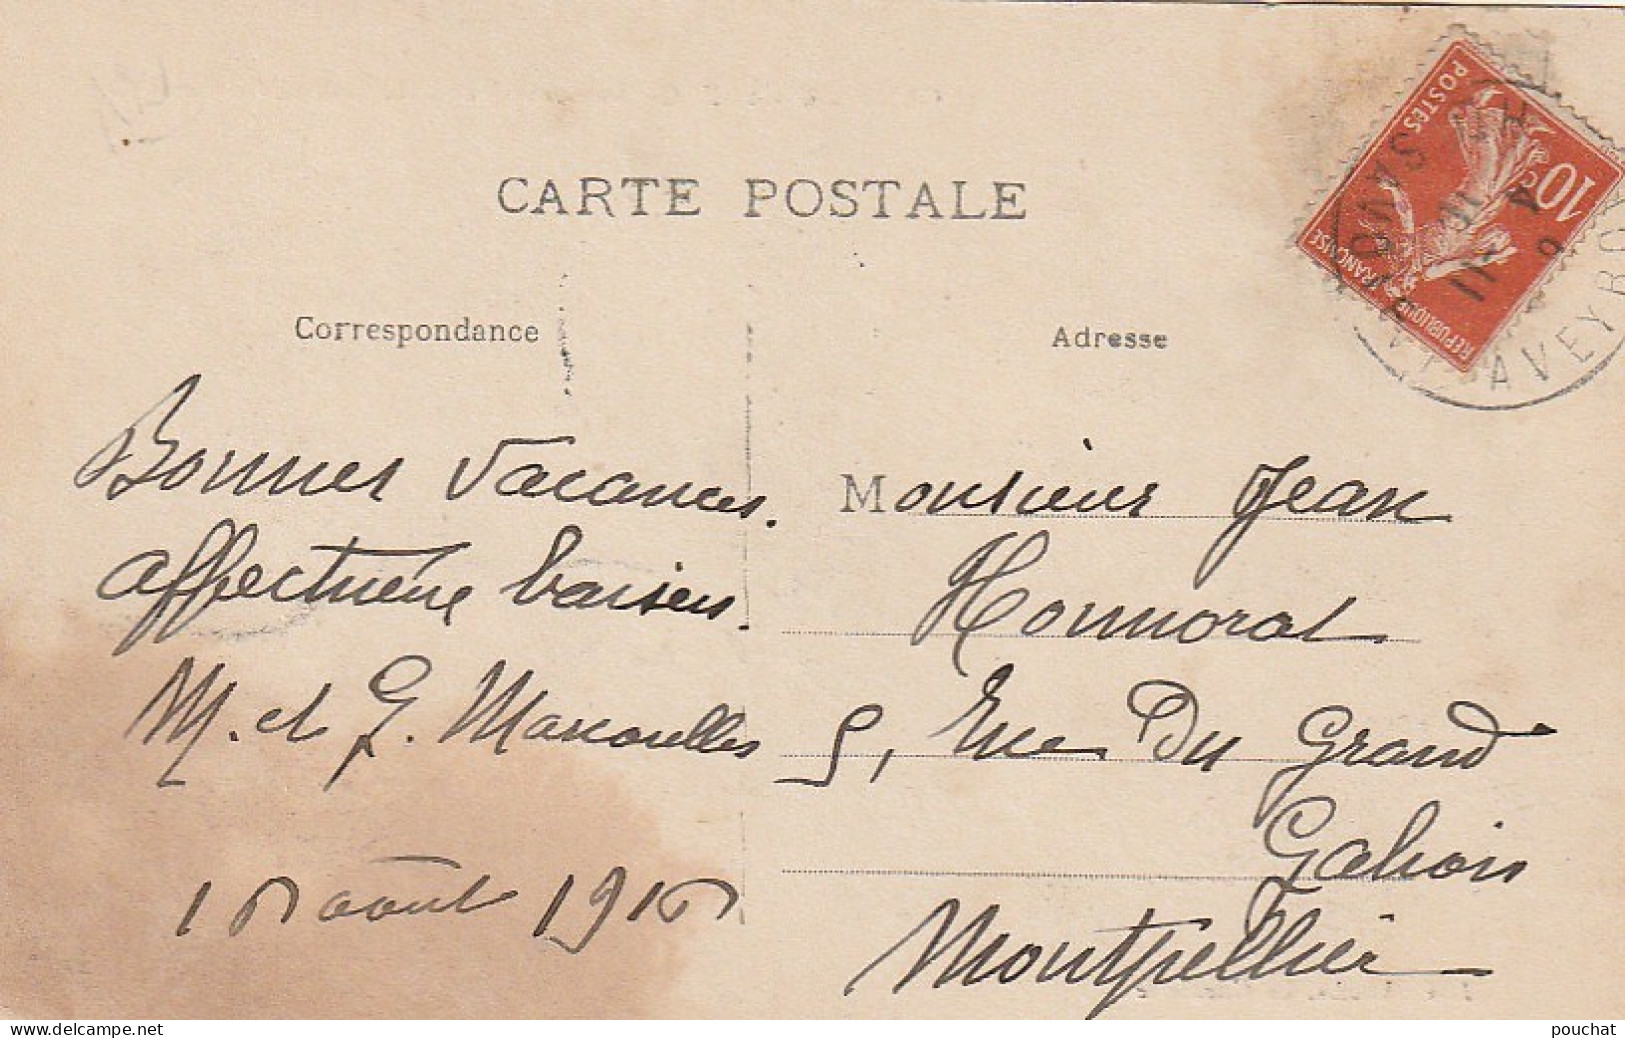 CARTE POSTALE
Correspondance
Adresse
POSTES
10c
REPUBLIQUE FRANÇAISE
AVEYRON
Bonnes Vacances.
Affectueux baisers.
M. et G. Marcouelles
août 191
Monsieur Jean
Honnorat
5, Rue Du Grand
Galion
Montpellier
delcampe.net
pouchat